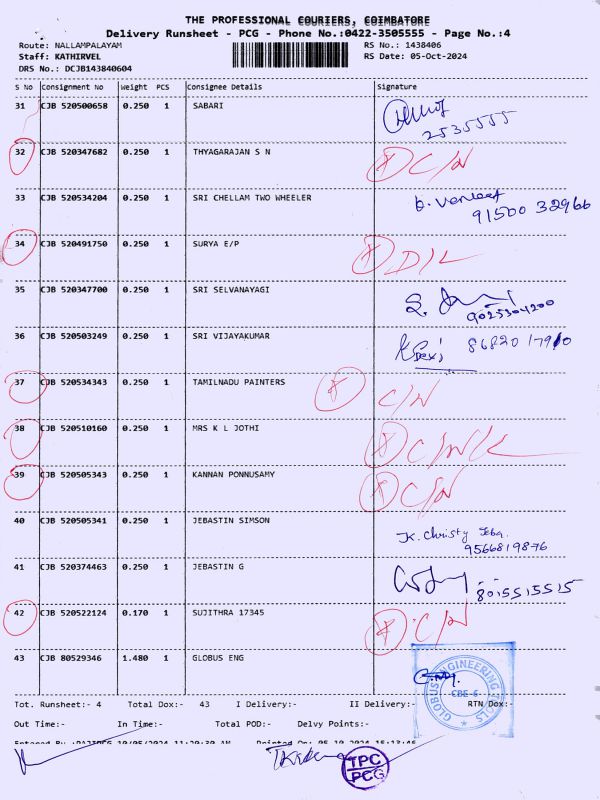 THE PROFESSIONAL COURIERS, COIMBATORE
Delivery Runsheet - PCG - Phone No.:0422-3505555 - Page No.:4
Route: NALLAMPALAYAM RS No.: 1438406
Staff: KATHIRVEL RS Date: 05-Oct-2024
DRS No.: DCJB143840604
S No Consignment No Weight PCS Consignee Details Signature
31 CJB 520500658 0.250 1 SABARI
2535555
32 CJB 520347682 0.250 1 THYAGARAJAN S N C/N
33 CJB 520534204 0.250 1 SRI CHELLAM TWO WHEELER
91500 32966
34 CJB 520491750 0.250 1 SURYA E/P D/L
35 CJB 520347700 0.250 1 SRI SELVANAYAGI
9025304200
36 CJB 520503249 0.250 1 SRI VIJAYAKUMAR
37 CJB 520534343 0.250 1 TAMILNADU PAINTERS C/N
38 CJB 520510160 0.250 1 MRS K L JOTHI
39 CJB 520505343 0.250 1 KANNAN PONNUSAMY C/N
40 CJB 520505341 0.250 1 JEBASTIN SIMSON
K. Christy Jeba.
9566819876
41 CJB 520374463 0.250 1 JEBASTIN G
8015515515
42 CJB 520522124 0.170 1 SUJITHRA 17345 C/N
43 CJB 80529346 1.480 1 GLOBUS ENG
GLOBUS ENGINEERING TOOLS
CBE-6
Tot. Runsheet:- 4 Total Dox:- 43 I Delivery:- II Delivery:- RTN Dox:-
Out Time:- In Time:- Total POD:- Delvy Points:-
Entered By :RAJIPCG 10/05/2024 11:20:30 AM Printed On: 05-10-2024 15:13:46
TPC
PCG